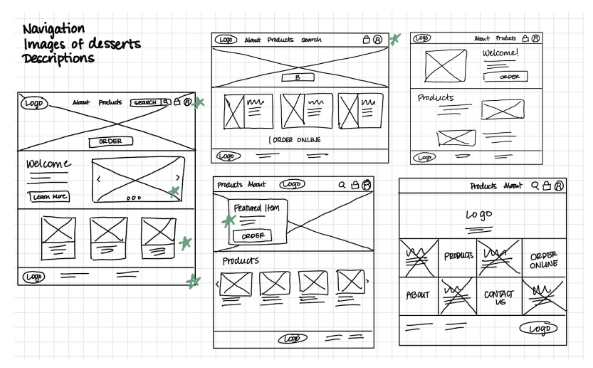 Navigation
Images of desserts
Descriptions
Logo About Products SEARCH
ORDER
Welcome
Learn More
Logo
Logo About Products Search
B
ORDER ONLINE
Logo
Logo About Products
Welcome!
ORDER
Products
Logo
Products About Logo
Featured Item
ORDER
Products
Logo
Products About
Logo
PRODUCTS ORDER ONLINE
ABOUT CONTACT US
Logo